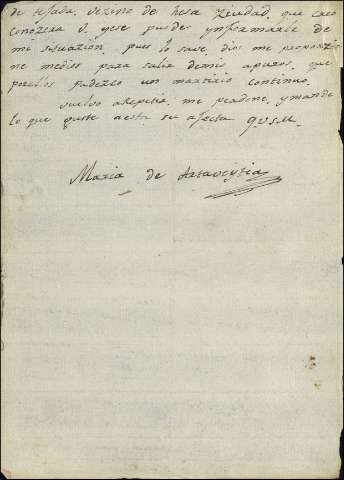 de tejada, vezino de hesa Ziudad, que creo
conozera V. y ese puede ynformarle de
mi situazion, pues lo save, dios me proporzione
me medios para salir demis apuros, que
por ellos padezco un martirio continuo
vuelvo arepetir, me perdone, ymande
lo que guste aesta su afecta q.v.s.m.
Maria de